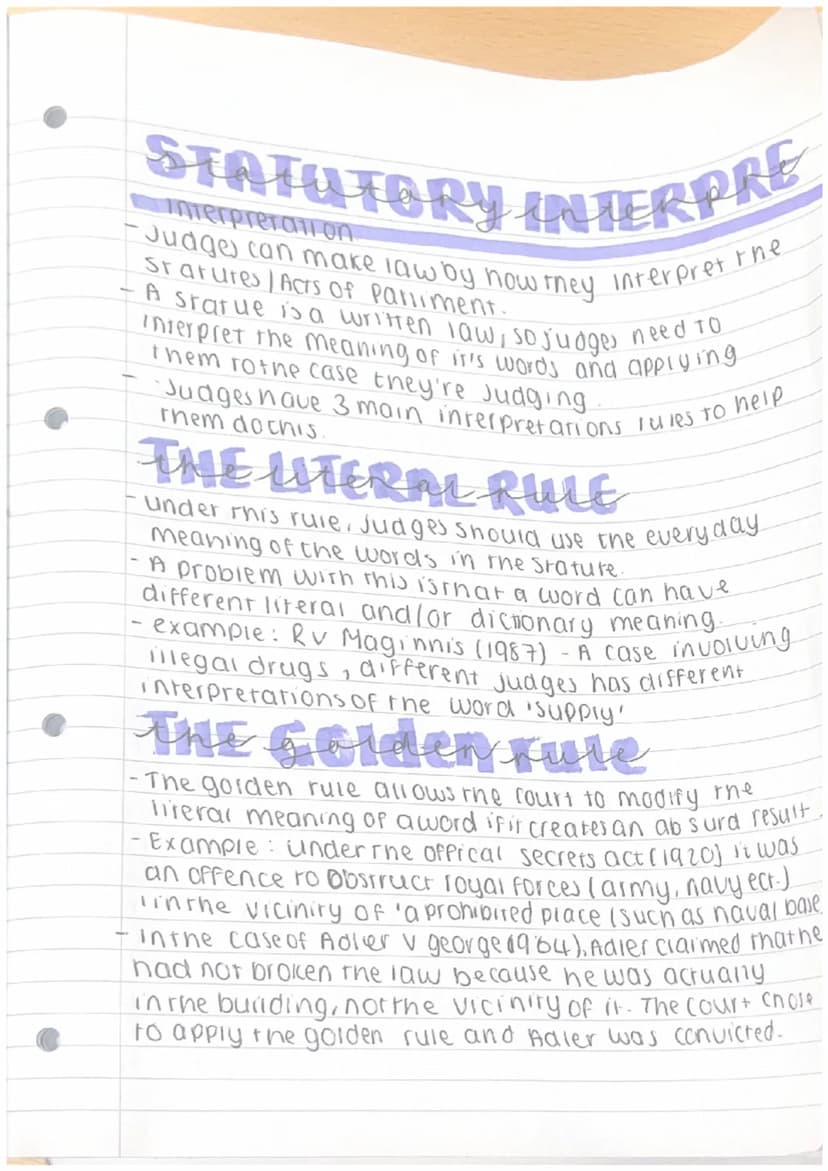 STATUTORY INTERPRE
Interpretation
- Judges can make law by how they interpret the
statutes / Acts of Parliment.
- A statue is a written law, so judges need to
interpret the meaning of it's words and applying
them to the case they're judging.
- Judges have 3 main interpretations rules to help
them do this.
THE LITERAL RULE
- Under this rule, judges should use the everyday
meaning of the words in the stature.
- A problem with this is that a word can have
different literal and/or dictionary meaning.
- example: R v Maginnis (1987) - A case involving
illegal drugs, different judges has different
interpretations of the word 'supply'
THE Golden rule
- The golden rule allows the court to modify the
literal meaning of a word if it creates an absurd result.
- Example: under the offical secrets act (1920) it was
an offence to Obstruct royal forces (army, navy ect.)
in the vicinity of 'a prohibited place (such as naval base
- In the case of Adler v george (1964), Adler claimed that he
had not broken the law because he was actually
in the building, not the vicinity of it. The court chose
to apply the golden rule and Adler was convicted.